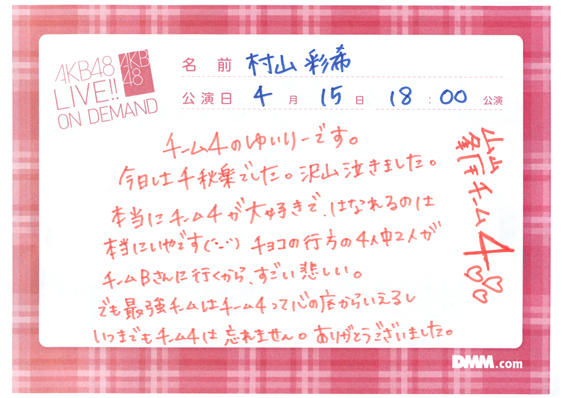 AKB48
LIVE!!
ON DEMAND
AKB
48
名前 村山彩希
公演日 4月15日 18:00公演
チーム4のゆいりーです。
今日は千秋楽でした。沢山泣きました。
本当にチーム4が大好きで、はなれるのは
本当にいやです チョコの行方の4人中2人が
チームBさんに行くから、すごい悲しい。
でも最強チームはチーム4って心の底からいえるし
いつまでもチーム4は忘れません。ありがとうございました。
チーム4♡♡♡
DMM.com